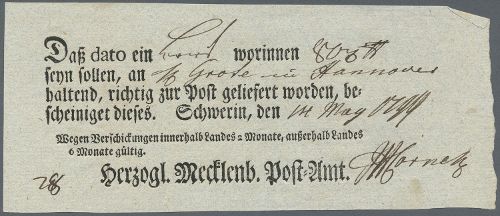 Daß dato ein worinnen
seyn sollen, an Grote in Hannover
haltend, richtig zur Post geliefert worden, be-
scheiniget dieses. Schwerin, den 14 May
Wegen Verschickungen innerhalb Landes 2 Monate, außerhalb Landes
6 Monate gültig.
Herzogl. Mecklenb. Post-Amt.